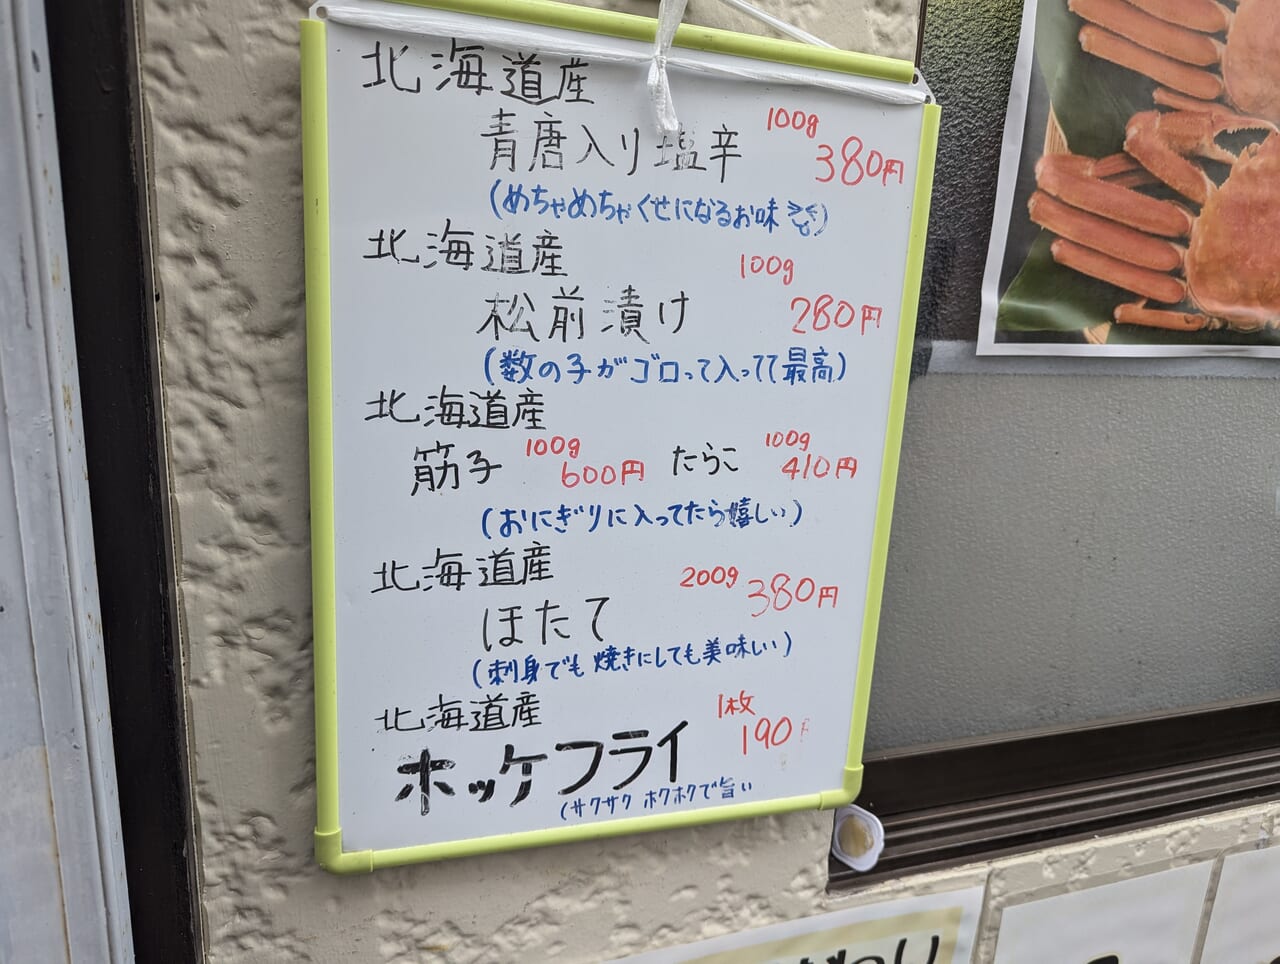 北海道産
青唐入り塩辛 100g 380円
(めちゃめちゃくせになるお味)
北海道産
松前漬け 100g 280円
(数の子がゴロって入ってて最高)
北海道産
筋子 100g 600円 たらこ 100g 410円
(おにぎりに入ってたら嬉しい)
北海道産
ほたて 200g 380円
(刺身でも焼きにしても美味しい)
北海道産
ホッケフライ 1枚 190円
(サクサク ホクホクで旨い